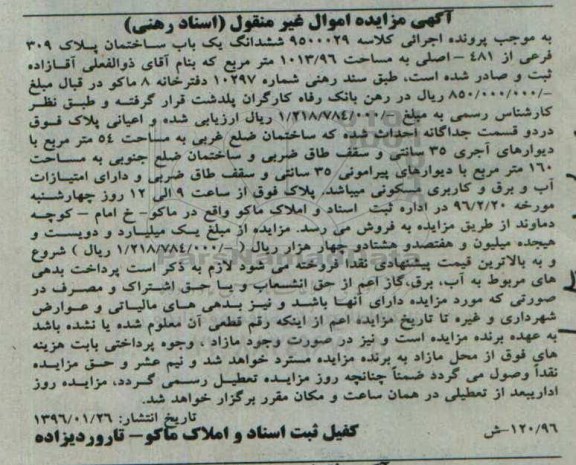 آگهی مزایده اموال غیر منقول (اسناد رهنی)
به موجب پرونده اجرائی کلاسه ۹۵۰۰۰۲۹ ششدانگ یک باب ساختمان پلاک ۳۰۹
فرعی از ۴۸۱ – اصلی به مساحت ۱۰۱۳/۹۶ متر مربع که بنام آقای ذوالفعلی آقازاده
ثبت و صادر شده است، طبق سند رهنی شماره ۱۰۲۹۷ دفترخانه ۸ ماکو در قبال مبلغ
۸۵۰/۰۰۰/۰۰۰/– ریال در رهن بانک رفاه کارگران پلدشت قرار گرفته و طبق نظر
کارشناس رسمی به مبلغ ۱/۲۱۸/۷۸۴/۰۰۰/– ریال ارزیابی شده و اعیانی پلاک فوق
دردو قسمت جداگانه احداث شده که ساختمان ضلع غربی به مساحت ۵۴ متر مربع با
دیوارهای آجری ۳۵ سانتی و سقف طاق ضربی و ساختمان ضلع جنوبی به مساحت
۱۶۰ متر مربع با دیوارهای پیرامونی ۳۵ سانتی و سقف طاق ضربی و دارای امتیازات
آب و برق و کاربری مسکونی میباشد. پلاک فوق از ساعت ۹ الی ۱۲ روز چهارشنبه
مورخه ۹۶/۲/۲۰ در اداره ثبت اسناد و املاک ماکو واقع در ماکو– خ امام – کوچه
دماوند از طریق مزایده به فروش می رسد. مزایده از مبلغ یک میلیارد و دویست و
هیجده میلیون و هفتصدو هشتادو چهار هزار ریال (–/۱/۲۱۸/۷۸۴/۰۰۰ ریال ) شروع
و به بالاترین قیمت پیشنهادی نقدا فروخته می شود لازم به ذکر است پرداخت بدهی
های مربوط به آب، برق،گاز اعم از حق انشعاب و یا حق اشتراک و مصرف در
صورتی که مورد مزایده دارای آنها باشد و نیز بدهی های مالیاتی و عوارض
شهرداری و غیره تا تاریخ مزایده اعم از اینکه رقم قطعی آن معلوم شده یا نشده باشد
به عهده برنده مزایده است و نیز در صورت وجود مازاد ، وجوه پرداختی بابت هزینه
های فوق از محل مازاد به برنده مزایده مسترد خواهد شد و نیم عشر و حق مزایده
نقداً وصول می گردد ضمناً چنانچه روز مزایده تعطیل رسمی گردد، مزایده روز
اداریبعد از تعطیلی در همان ساعت و مکان مقرر برگزار خواهد شد.
تاریخ انتشار: ۱۳۹۶/۰۱/۲۶
۱۲۰/۹۶–ش کفیل ثبت اسناد و املاک ماکو– تاروردیزاده